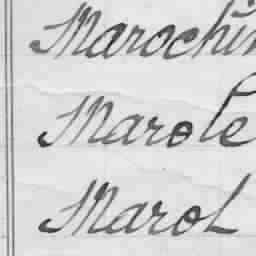 Marochin
Marole
Marol